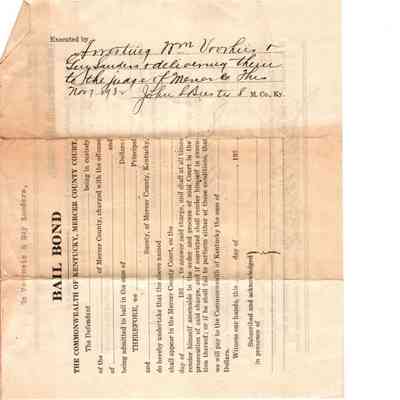 Executed by Arresting Wm Voorhies &
Guy Sanders & delivering them
to the judge of Mercer Co This
Nov 7 1932 John S S M. Co. Ky.
BAIL BOND
THE COMMONWEALTH OF KENTUCKY, MERCER COUNTY COURT.
The Defendant being in custody
of the of Mercer County, charged with the offense
of and
being admitted to bail in the sum of Dollars:
THEREFORE, we Principal
and Surety, of Mercer County, Kentucky,
do hereby undertake that the above named
shall appear in the Mercer County Court, on the
day of 191 , to answer said charge, and shall at all times
render himself amenable to the order and process of said Court in the
prosecution of said charge, and if convicted shall render himself in execu-
tion thereof; or if he shall fail to perform either of these conditions, that
we will pay to the Commonwealth of Kentucky the sum of
Dollars.
Witness our hands, this day of 191
Subscribed and acknowledged
in presence of